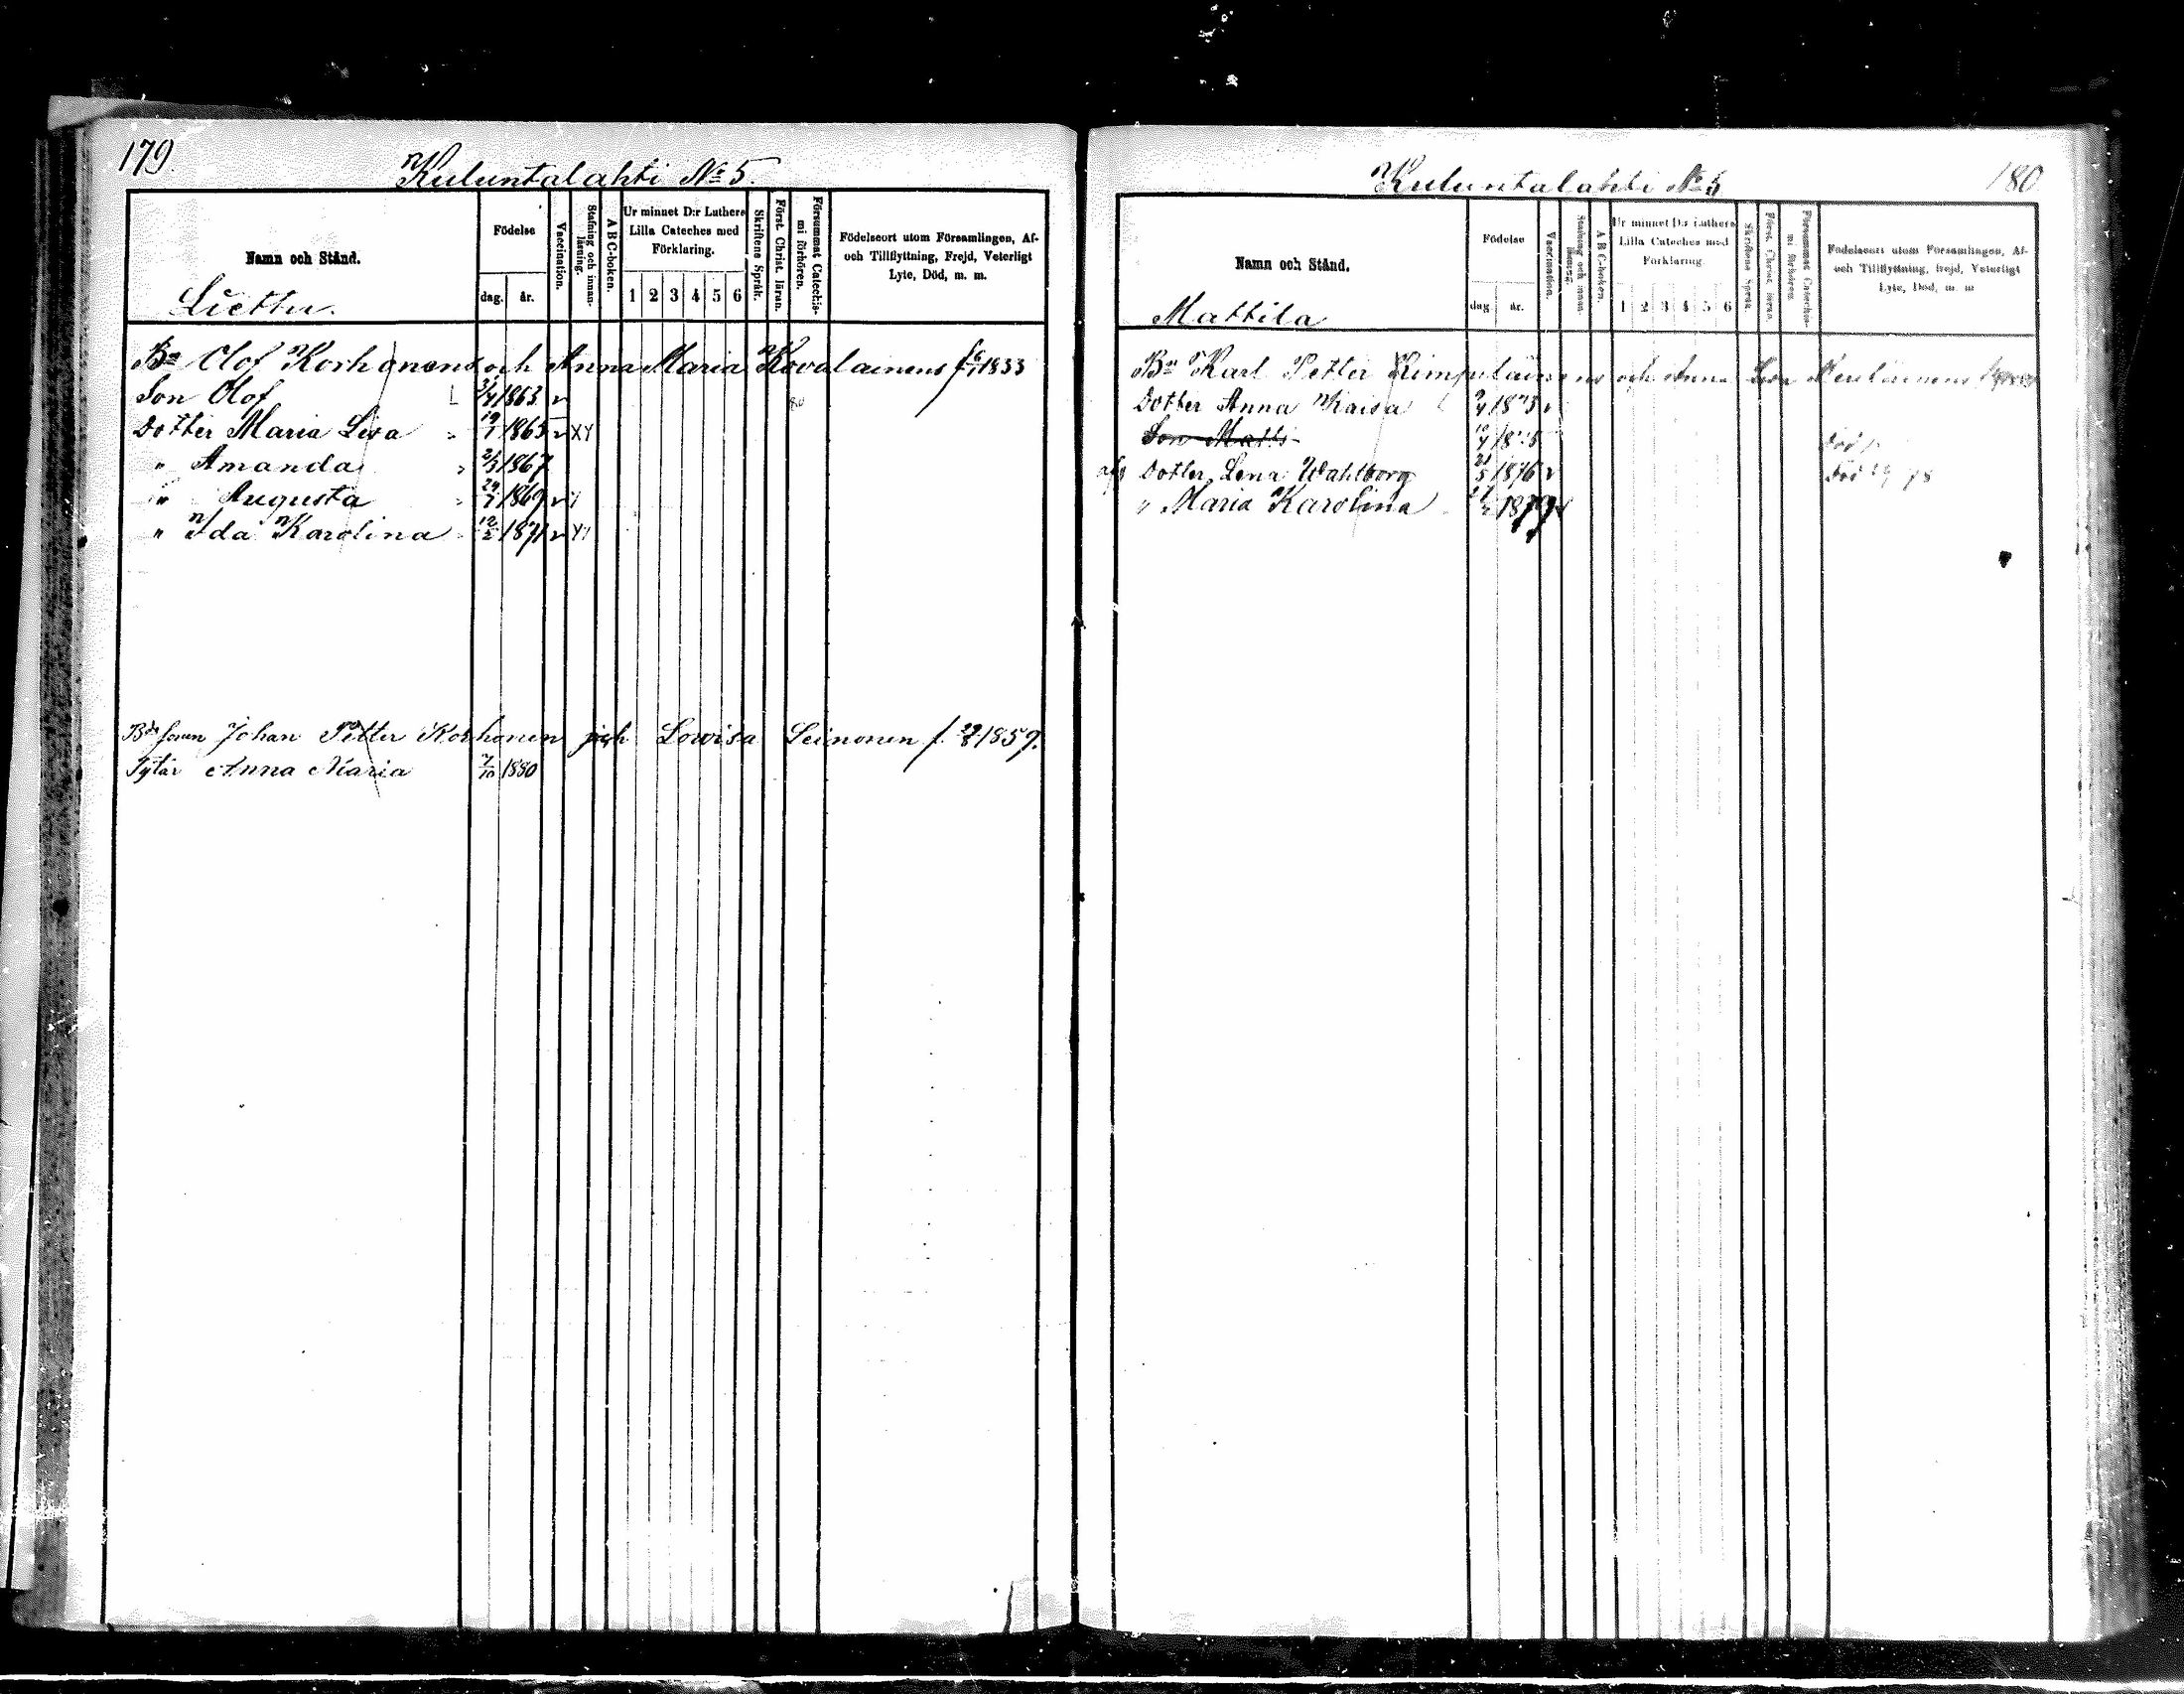 179.
Kuluntalahti No 5.
Namn och Stånd.
Födelse
dag. år.
Vaccination.
Stafning och innanläsning.
ABC-boken.
Ur minnet D:r Luthers Lilla Cateches med Förklaring.
1 2 3 4 5 6
Skriftens Språk.
Först. Christ. läran.
Försummat Catechismi förhören.
Födelseort utom Församlingen, Af- och Tillflyttning, Frejd, Veterligt Lyte, Död, m. m.
Bn Olof Korhonens och Anna Maria Kovalainens 1833
Son Olof 1863 v
Dotter Maria Lisa 19/1 1865 v XY
" Amanda 1867
" Augusta 1869 v Y
" Ida Karolina 12/2 1871 v
Johan Petter Korhonen Lovisa Leinonen f. 1859.
Tytär Anna Maria 7/10 1880
180
Kuluntalahti No 5
Namn och Stånd.
Mattila
Födelse
dag år.
Vaccination.
Stafning och innanläsning.
ABC-boken.
Ur minnet D:r Luthers Lilla Cateches med Förklaring.
1 2 3 4 5 6
Skriftens Språk.
Först. Christ. läran.
Försummat Catechismi förhören.
Födelseort utom Församlingen, Af- och Tillflyttning, Frejd, Veterligt Lyte, Död, m. m.
Bn Karl Petter Kimpulainens och Anna Lisa
Dotter Anna Kaisa
Son Matti
Dotter Lena Wahlborg 1876 v
" Maria Karolina 1879